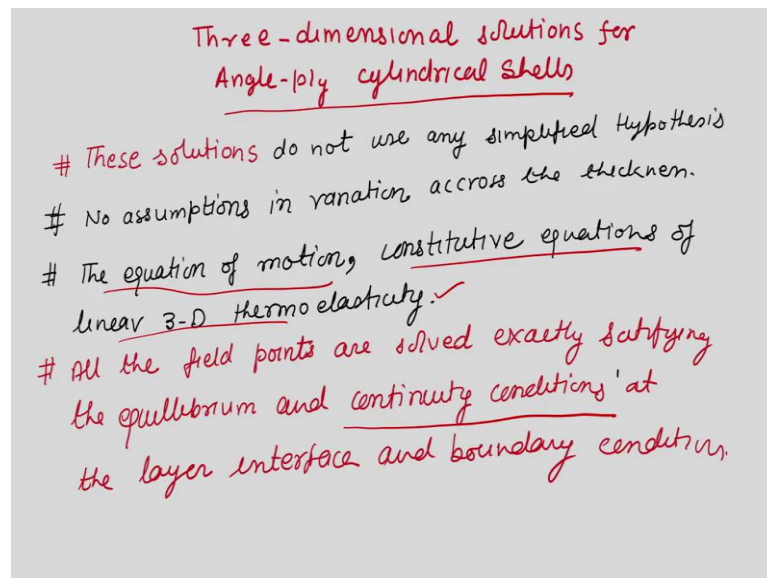 Three-dimensional solutions for
Angle-ply cylindrical shells
# These solutions do not use any simplified Hypothesis
# No assumptions in variation accross the thickness.
# The equation of motion, constitutive equations of
linear 3-D thermoelasticity.
# All the field points are solved exactly satisfying
the equillibrium and continuity conditions at
the layer interface and boundary conditions.